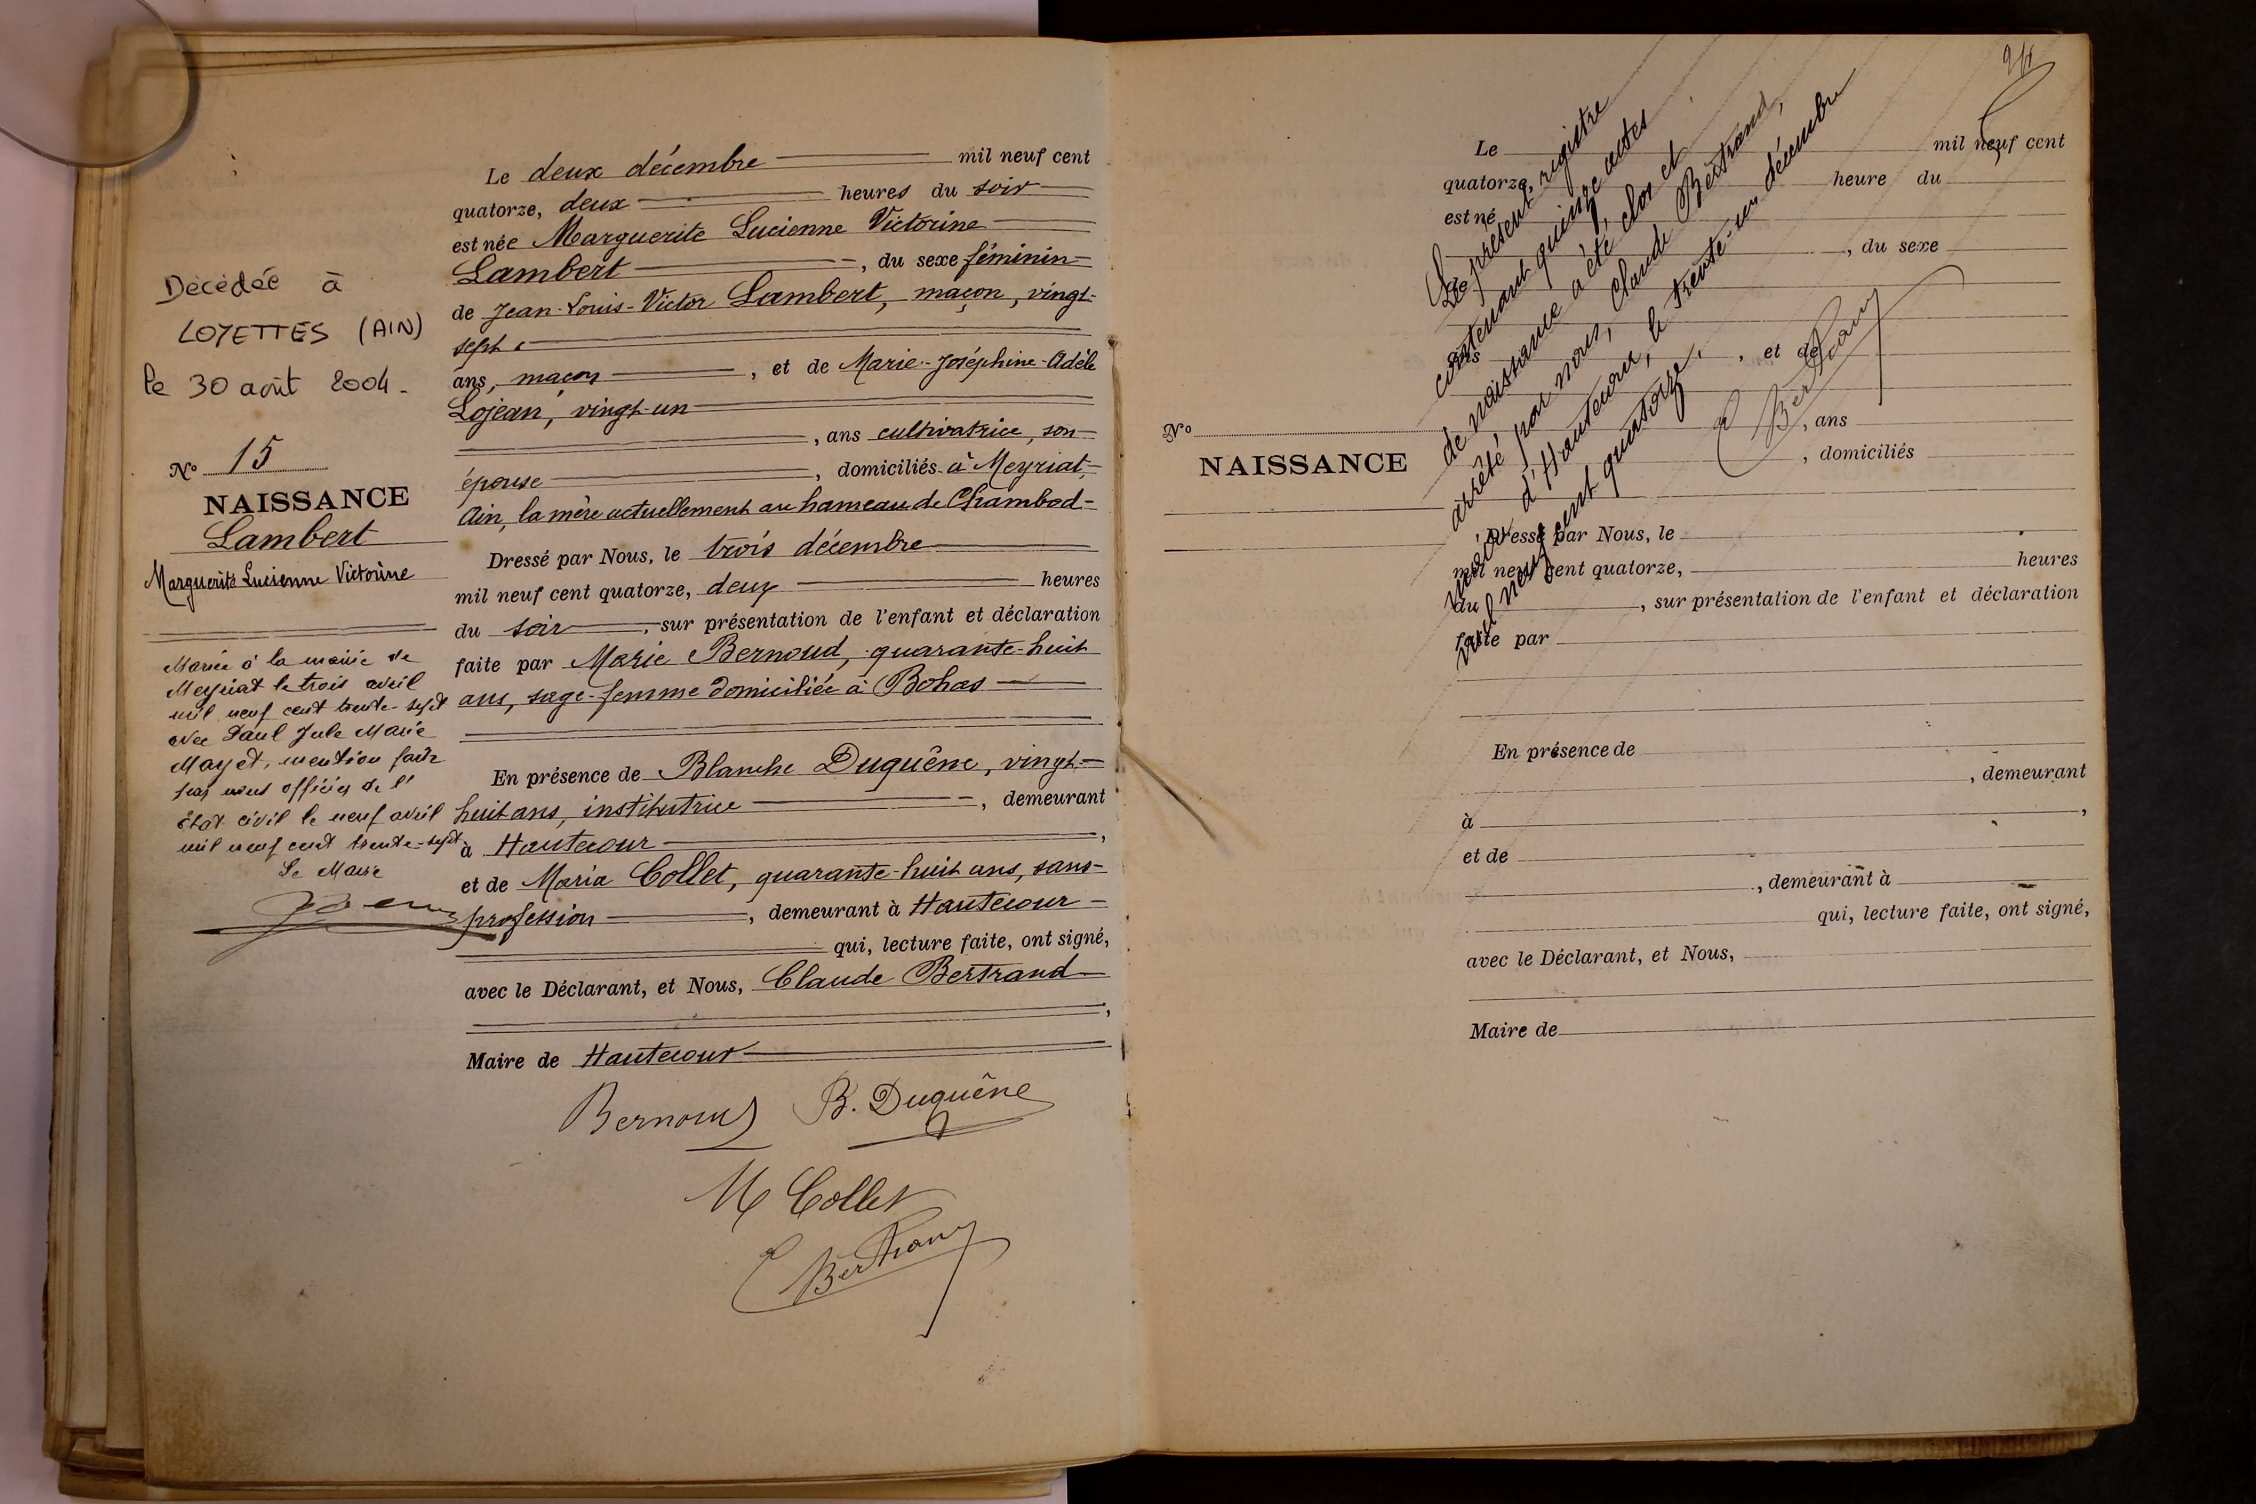 Décédée à
LOYETTES (AIN)
le 30 août 2004.
N° 15
NAISSANCE
Lambert
Marguerite Lucienne Victorine
Mariée à la mairie de
Meyriat le trois avril
mil neuf cent trente-sept
avec Paul Jule Marie
Mayet, mention faite
par nous officier de l'
État civil le neuf avril
mil neuf cent trente-sept
Le Maire
Le deux décembre mil neuf cent
quatorze, deux heures du soir
est née Marguerite Lucienne Victorine
Lambert , du sexe féminin
de Jean-Louis-Victor Lambert, maçon, vingt-
sept
ans, maçon , et de Marie-Joséphine-Adèle
Lojean, vingt-un
, ans cultivatrice, son
épouse , domiciliés à Meyriat,
Ain, la mère actuellement au hameau de Chambod
Dressé par Nous, le trois décembre
mil neuf cent quatorze, deux heures
du soir , sur présentation de l'enfant et déclaration
faite par Marie Bernoud, quarante-huit
ans, sage-femme domiciliée à Bohas
En présence de Blanche Duquêne, vingt-
huit ans, institutrice , demeurant
à Hautecour ,
et de Maria Collet, quarante-huit ans, sans
profession , demeurant à Hautecour
qui, lecture faite, ont signé,
avec le Déclarant, et Nous, Claude Bertrand
,
Maire de Hautecour
Bernoud B. Duquêne
M Collet
C Bertrand
Le mil neuf cent
quatorze, heure du
est né
, du sexe
de
ans , et de
, ans
N°
NAISSANCE
, domiciliés
Dressé par Nous, le
mil neuf cent quatorze, heures
du , sur présentation de l'enfant et déclaration
faite par
En présence de
, demeurant
à ,
et de
, demeurant à
qui, lecture faite, ont signé,
avec le Déclarant, et Nous,
Maire de
Le présent registre
contenant quinze actes
de naissance a été clos et
arrêté par nous, Claude Bertrand,
maire d'Hautecour, le trente-un décembre
mil neuf cent quatorze.
C Bertrand